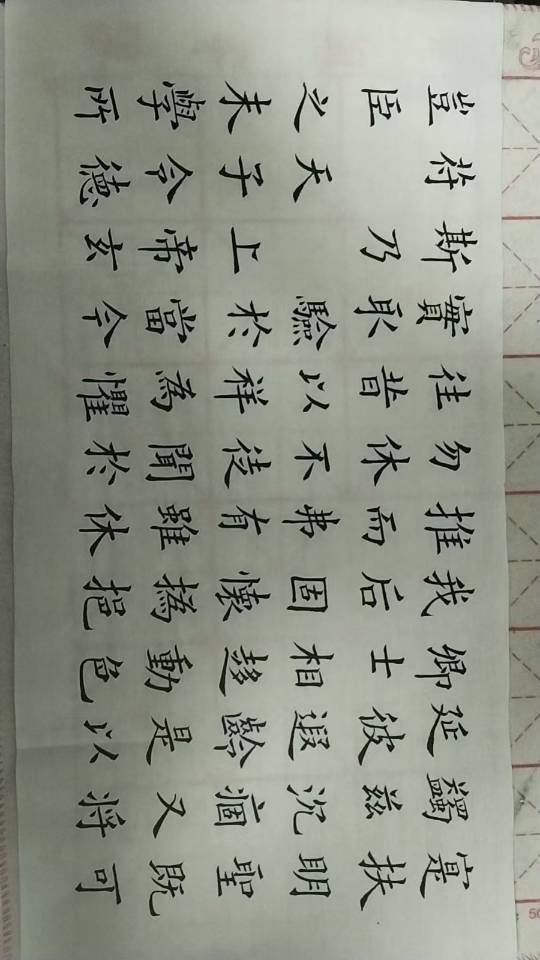 寔扶明聖既可
蠲茲沉痼又將
延彼遐齡是以
卿士相趍動色
我后固懷撝挹
推而弗有雖休
勿休不徒聞於
往昔以祥為懼
實取驗於當今
斯乃上帝玄
符天子令德
豈臣之末學所